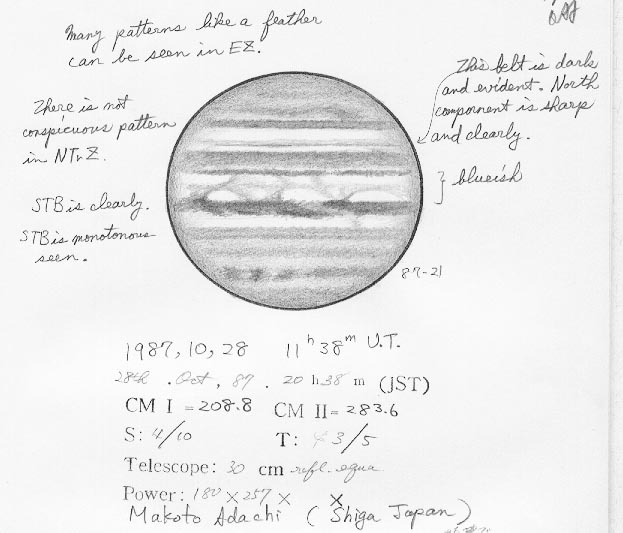 Many patterns like a feather
can be seen in EZ.
This belt is dark
and evident. North
compornent is sharp
and clearly.
There is not
conspicuous pattern
in NTrZ.
} blueish
STB is clearly.
STB is monotonous
seen.
87-21
1987, 10, 28 11h 38m U.T.
28th . Oct , 87 . 20 h 38 m (JST)
CM I = 208.8 CM II = 283.6
S: 4/10 T: 3/5
Telescope: 30 cm refl. equa.
Power: 180 × 257 × ×
Makoto Adachi ( Shiga Japan )